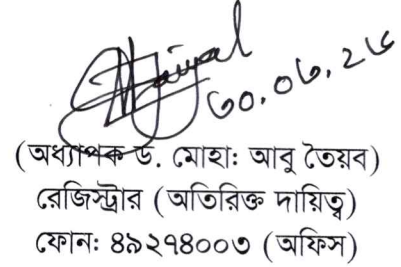 ৩০.০৬.২৫
(অধ্যাপক ড. মোহা: আবু তৈয়ব)
রেজিস্ট্রার (অতিরিক্ত দায়িত্ব)
ফোন: ৪৯২৭৪০০৩ (অফিস)